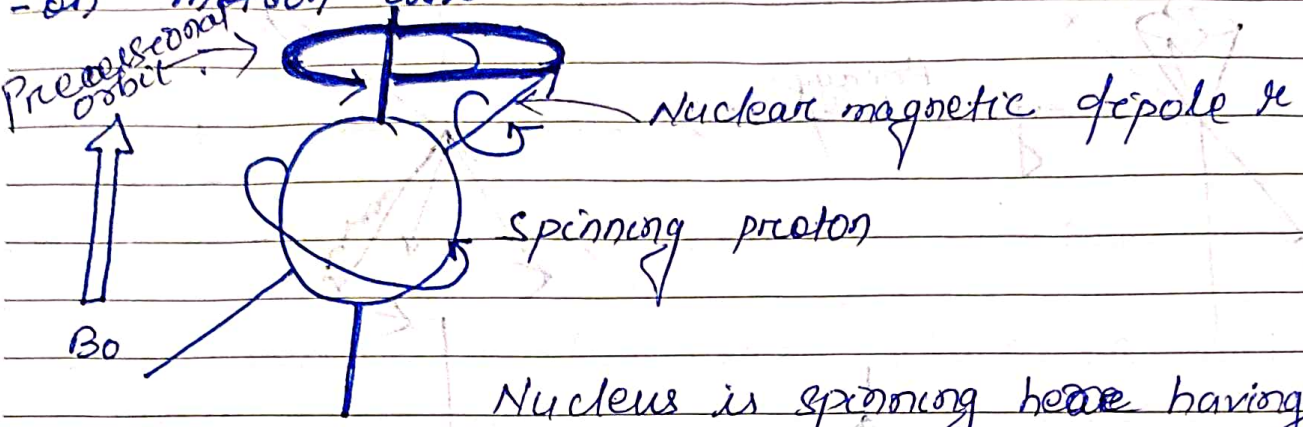 Precessional
orbit
Nuclear magnetic dipole
Spinning proton
Bo
Nucleus is spinning here having